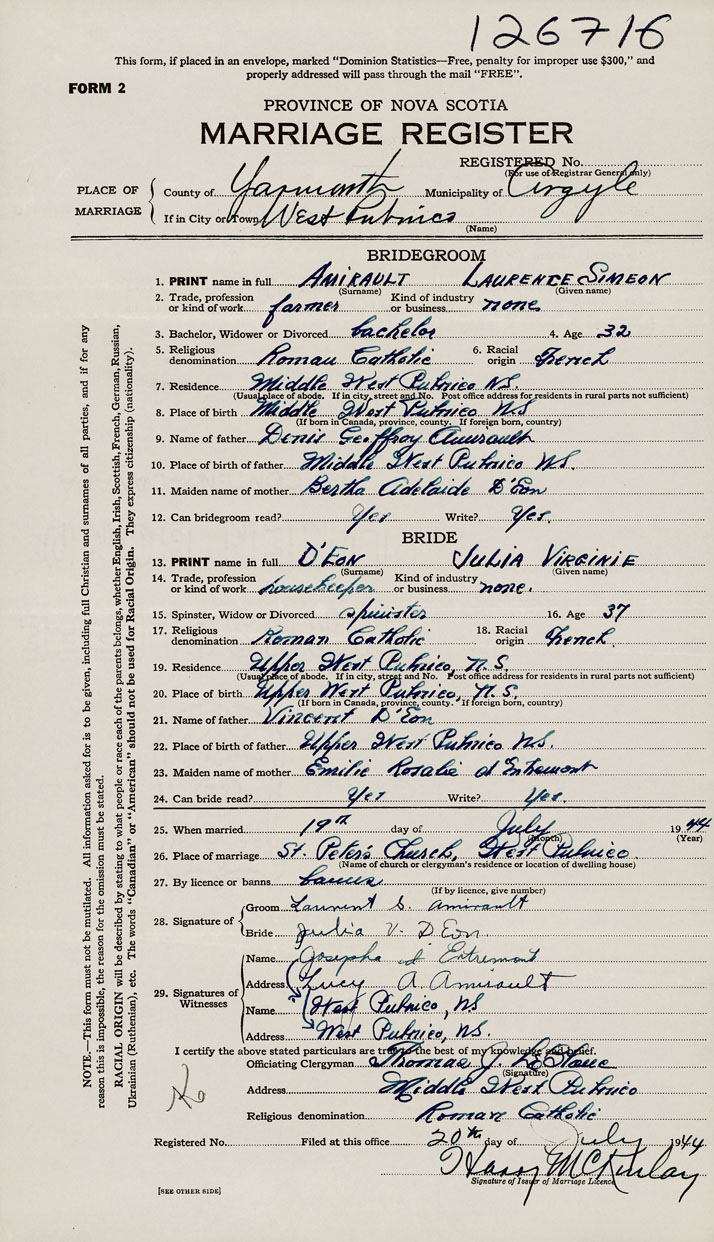 126716
This form, if placed in an envelope, marked "Dominion Statistics—Free, penalty for improper use $300," and
properly addressed will pass through the mail "FREE".
FORM 2
PROVINCE OF NOVA SCOTIA
MARRIAGE REGISTER
REGISTERED No.
(For use of Registrar General only)
PLACE OF MARRIAGE
County of Yarmouth Municipality of Argyle
If in City or Town West Pubnico
(Name)
BRIDEGROOM
1. PRINT name in full AMIRAULT LAURENCE SIMEON
(Surname) (Given name)
2. Trade, profession or kind of work farmer Kind of industry or business none
3. Bachelor, Widower or Divorced bachelor 4. Age 32
5. Religious denomination Roman Catholic 6. Racial origin French
7. Residence Middle West Pubnico N.S.
(Usual place of abode. If in city, street and No. Post office address for residents in rural parts not sufficient)
8. Place of birth Middle West Pubnico N.S
(If born in Canada, province, county. If foreign born, country)
9. Name of father Denis Geoffroy Amirault
10. Place of birth of father Middle West Pubnico N.S.
11. Maiden name of mother Bertha Adelaide D'Eon
12. Can bridegroom read? Yes Write? Yes.
BRIDE
13. PRINT name in full D'EON JULIA VIRGINIE
(Surname) (Given name)
14. Trade, profession or kind of work housekeeper Kind of industry or business none.
15. Spinster, Widow or Divorced spinster 16. Age 37
17. Religious denomination Roman Catholic 18. Racial origin French
19. Residence Upper West Pubnico, N.S.
(Usual place of abode. If in city, street and No. Post office address for residents in rural parts not sufficient)
20. Place of birth Upper West Pubnico, N.S.
(If born in Canada, province, county. If foreign born, country)
21. Name of father Vincent D'Eon
22. Place of birth of father Upper West Pubnico N.S.
23. Maiden name of mother Emilie Rosalie d'Entremont
24. Can bride read? Yes Write? Yes.
25. When married 19th day of July 1944
(Month) (Year)
26. Place of marriage St. Peter's Church, West Pubnico
(Name of church or clergyman's residence or location of dwelling house)
27. By licence or banns banns
(If by licence, give number)
28. Signature of
Groom Laurent S. Amirault
Bride Julia V. D'Eon
29. Signatures of Witnesses
Name Josepha d'Entremont
Address Lucy A. Amirault
Name West Pubnico, NS
Address West Pubnico, NS.
I certify the above stated particulars are true to the best of my knowledge and belief.
Officiating Clergyman Thomas J. LeBlanc
(Signature)
Address Middle West Pubnico
Religious denomination Roman Catholic
Registered No. Filed at this office 20th day of July 1944
Harry McKinlay
Signature of Issuer of Marriage Licence
[SEE OTHER SIDE]
NOTE.—This form must not be mutilated. All information asked for is to be given, including full Christian and surnames of all parties, and if for any
reason this is impossible, the reason for the omission must be stated.
RACIAL ORIGIN will be described by stating to what people or race each of the parents belongs, whether English, Irish, Scottish, French, German, Russian,
Ukrainian (Ruthenian), etc. The words "Canadian" or "American" should not be used for Racial Origin. They express citizenship (nationality).